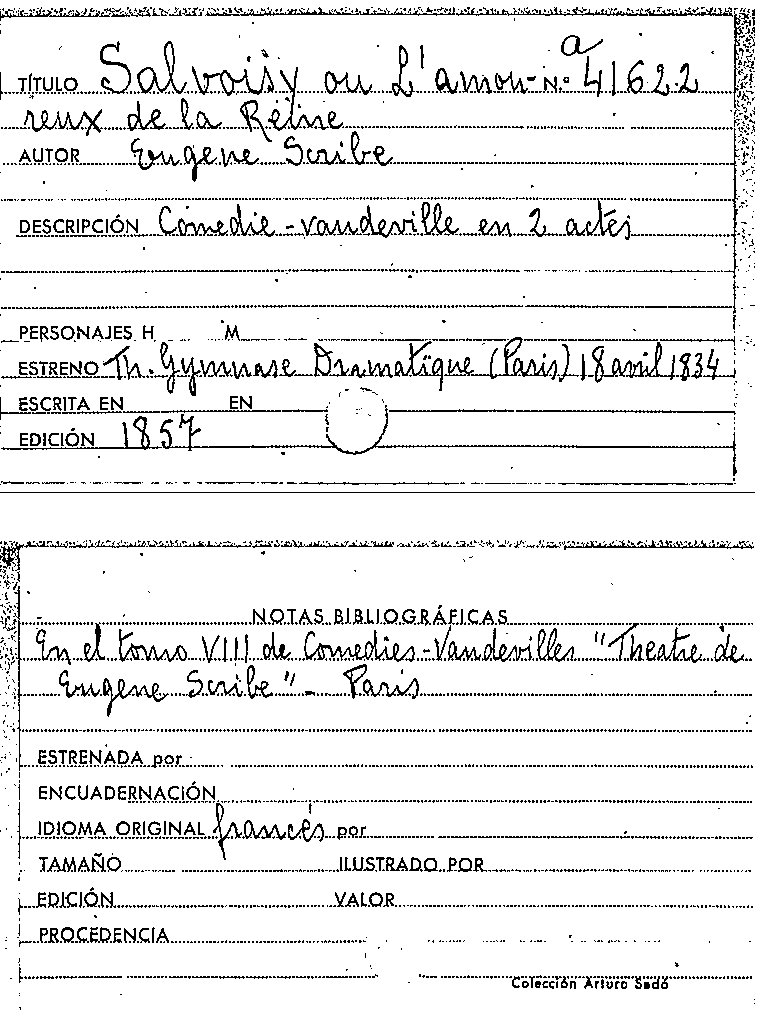 TÍTULO Salvoisy ou L'amou- N.º a 41622
reux de la Reine
AUTOR Eugene Scribe
DESCRIPCIÓN Comedie-vaudeville en 2 actes
PERSONAJES H M
ESTRENO Th. Gymnase Dramatique (Paris) 18 avril 1834
ESCRITA EN EN
EDICIÓN 1857
NOTAS BIBLIOGRÁFICAS
En el tomo VIII de Comedies-Vaudevilles "Theatre de
Eugene Scribe" - Paris
ESTRENADA por
ENCUADERNACIÓN
IDIOMA ORIGINAL francés por
TAMAÑO ILUSTRADO POR
EDICIÓN VALOR
PROCEDENCIA
Colección Arturo Sedó